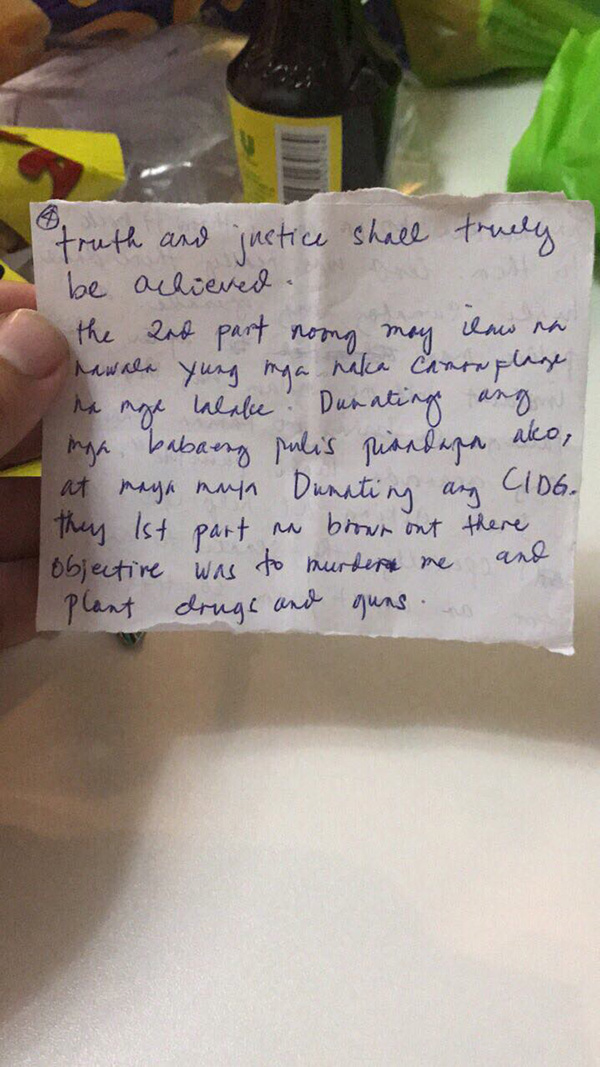 ④
truth and justice shall truely
be achieved.
the 2nd part noong may ilaw na
nawala yung mga naka camouplage
na mga lalake. Dumating ang
mga babaeng pulis pinadapa ako,
at maya maya Dumating ang CIDG.
they 1st part na brown out there
objective was to murder me and
plant drugs and guns.